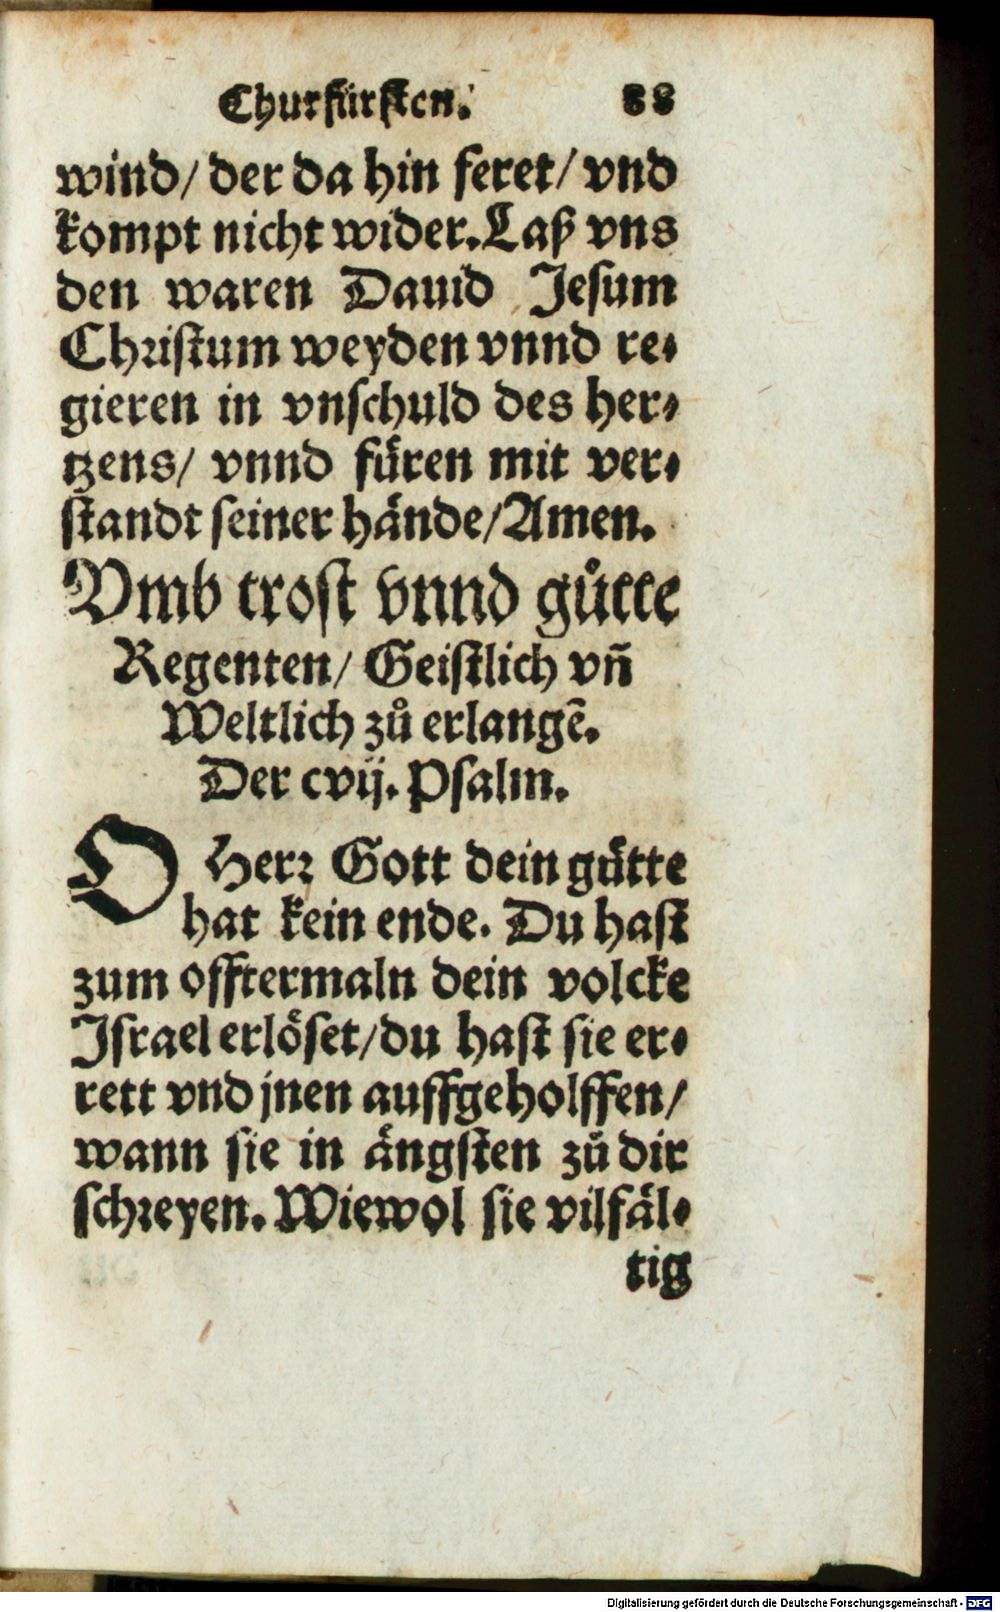 Churfürsten. 88
wind/ der da hin feret/ vnd
kompt nicht wider. Laß vns
den waren Dauid Jesum
Christum weyden vnnd re⸗
gieren in vnschuld des her⸗
tzens/ vnnd fuͤren mit ver⸗
standt seiner hånde/ Amen.
Vmb trost vnnd guͤtte
Regenten/ Geistlich vñ
Weltlich zů erlangẽ.
Der cvij. Psalm.
O Herr Gott dein guͤtte
hat kein ende. Du hast
zum offtermaln dein volcke
Israel erloͤset/ du hast sie er⸗
rett vnd jnen auffgeholffen/
wann sie in aͤngsten zů dir
schreyen. Wiewol sie vilfaͤl⸗
tig
Digitalisierung gefördert durch die Deutsche Forschungsgemeinschaft - DFG